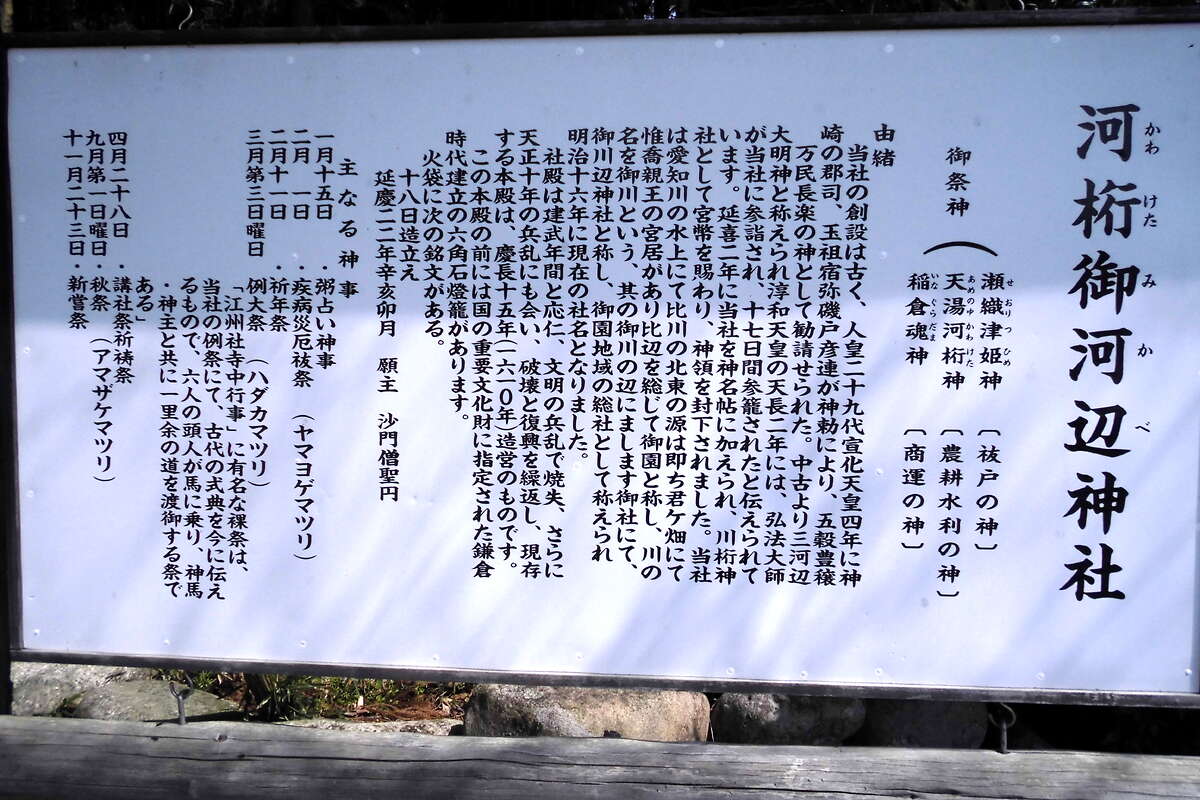 河桁御河辺神社
かわけたみかべ
御祭神
瀬織津姫神 〔祓戸の神〕
せおりつひめ
天湯河桁神 〔農耕水利の神〕
あめのゆかわけた
稲倉魂神 〔商運の神〕
いなぐらだま
由緒
当社の創設は古く、人皇二十九代宣化天皇四年に神
崎の郡司、玉祖宿弥磯戸彦連が神勅により、五穀豊穣
万民長楽の神として勧請せられた。中古より三河辺
大明神と称えられ淳和天皇の天長二年には、弘法大師
が当社に参詣され、十七日間参籠されたと伝えられて
います。延喜二年に当社を神名帖に加えられ、川桁神
社として宮幣を賜わり、神領を封下されました。当社
は愛知川の水上にて比川の北東の源は即ち君ケ畑にて
惟喬親王の宮居があり比辺を総じて御園と称し、川の
名を御川という、其の御川の辺にまします御社にて、
御川辺神社と称し、御園地域の総社として称えられ
明治十六年に現在の社名となりました。
社殿は建武年間と応仁、文明の兵乱で焼失、さらに
天正十年の兵乱にも会い、破壊と復興を繰返し、現存
する本殿は、慶長十五年(一六一〇年)造営のものです。
この本殿の前には国の重要文化財に指定された鎌倉
時代建立の六角石燈籠があります。
火袋に次の銘文がある。
十八日造立え
延慶二二年辛亥卯月 願主 沙門僧聖円
主なる神事
一月十五日・粥占い神事
二月 一日・疾病災厄祓祭 (ヤマヨゲマツリ)
二月十一日・祈年祭
三月第三日曜日 例大祭 (ハダカマツリ)
「江州社寺中行事」に有名な裸祭は、
当社の例祭にて、古代の式典を今に伝え
るもので、六人の頭人が馬に乗り、神馬
・神主と共に一里余の道を渡御する祭で
ある」
四月二十八日・講社祭祈祷祭
九月第一日曜日・秋祭 (アマザケマツリ)
十一月二十三日・新嘗祭